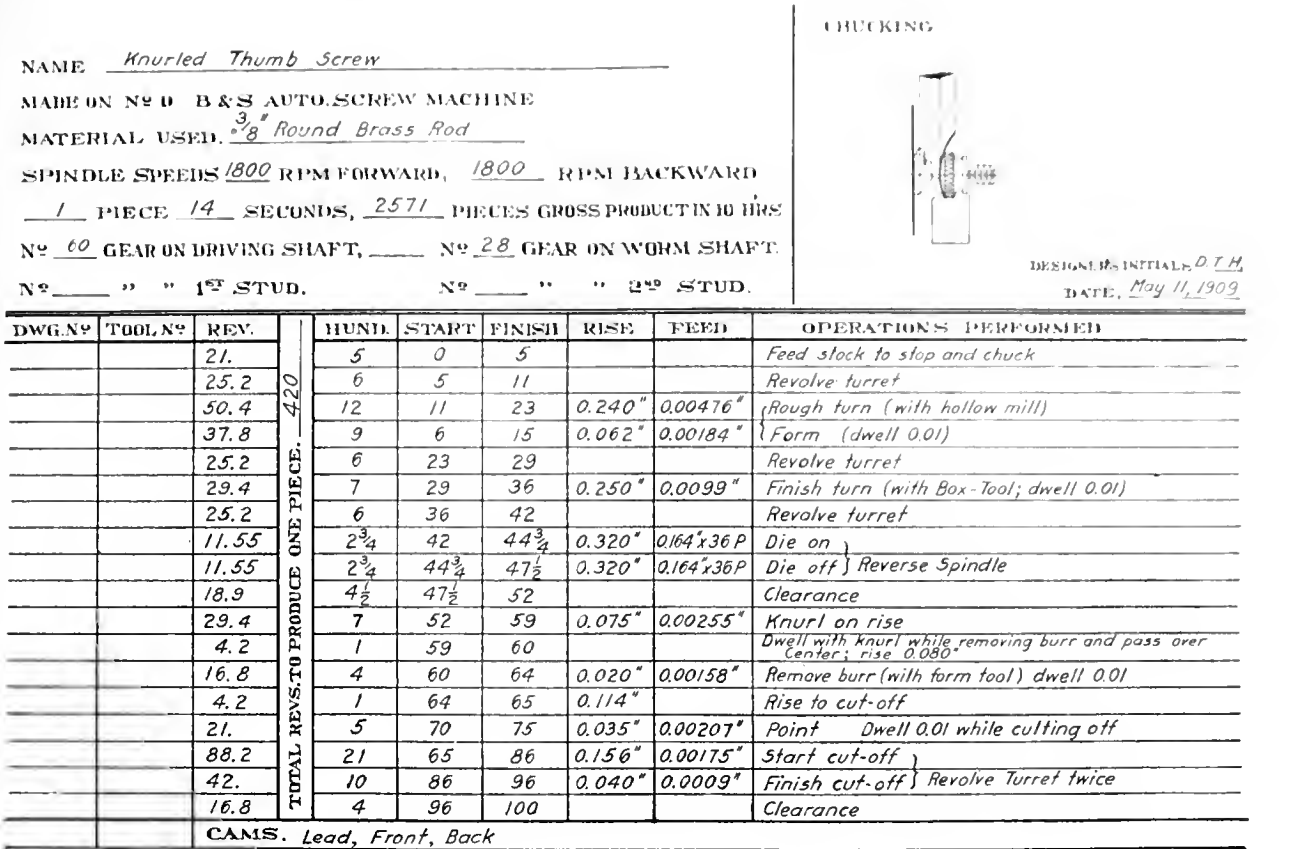 CHUCKING
NAME Knurled Thumb Screw
MADE ON Nº 0 B & S AUTO. SCREW MACHINE
MATERIAL USED. 3/8" Round Brass Rod
SPINDLE SPEEDS 1800 RPM FORWARD, 1800 RPM BACKWARD
1 PIECE 14 SECONDS, 2571 PIECES GROSS PRODUCT IN 10 HRS
Nº 60 GEAR ON DRIVING SHAFT, Nº 28 GEAR ON WORM SHAFT.
Nº " " 1ST STUD. Nº " " 2ND STUD.
DESIGNER'S INITIALS D.T.H.
DATE, May 11, 1909
DWG.Nº TOOL Nº REV. HUND. START FINISH RISE FEED OPERATIONS PERFORMED
TOTAL REVS. TO PRODUCE ONE PIECE. 420
21. 5 0 5 Feed stock to stop and chuck
25.2 6 5 11 Revolve turret
50.4 12 11 23 0.240" 0.00476" Rough turn (with hollow mill)
37.8 9 6 15 0.062" 0.00184" Form (dwell 0.01)
25.2 6 23 29 Revolve turret
29.4 7 29 36 0.250" 0.0099" Finish turn (with Box-Tool; dwell 0.01)
25.2 6 36 42 Revolve turret
11.55 2 3/4 42 44 3/4 0.320" 0.164"x36P Die on
11.55 2 3/4 44 3/4 47 1/2 0.320" 0.164"x36P Die off } Reverse Spindle
18.9 4 1/2 47 1/2 52 Clearance
29.4 7 52 59 0.075" 0.00255" Knurl on rise
4.2 1 59 60 Dwell with knurl while removing burr and pass over
Center; rise 0.080"
16.8 4 60 64 0.020" 0.00158" Remove burr (with form tool) dwell 0.01
4.2 1 64 65 0.114" Rise to cut-off
21. 5 70 75 0.035" 0.00207" Point Dwell 0.01 while cutting off
88.2 21 65 86 0.156" 0.00175" Start cut-off
42. 10 86 96 0.040" 0.0009" Finish cut-off } Revolve Turret twice
16.8 4 96 100 Clearance
CAMS. Lead, Front, Back